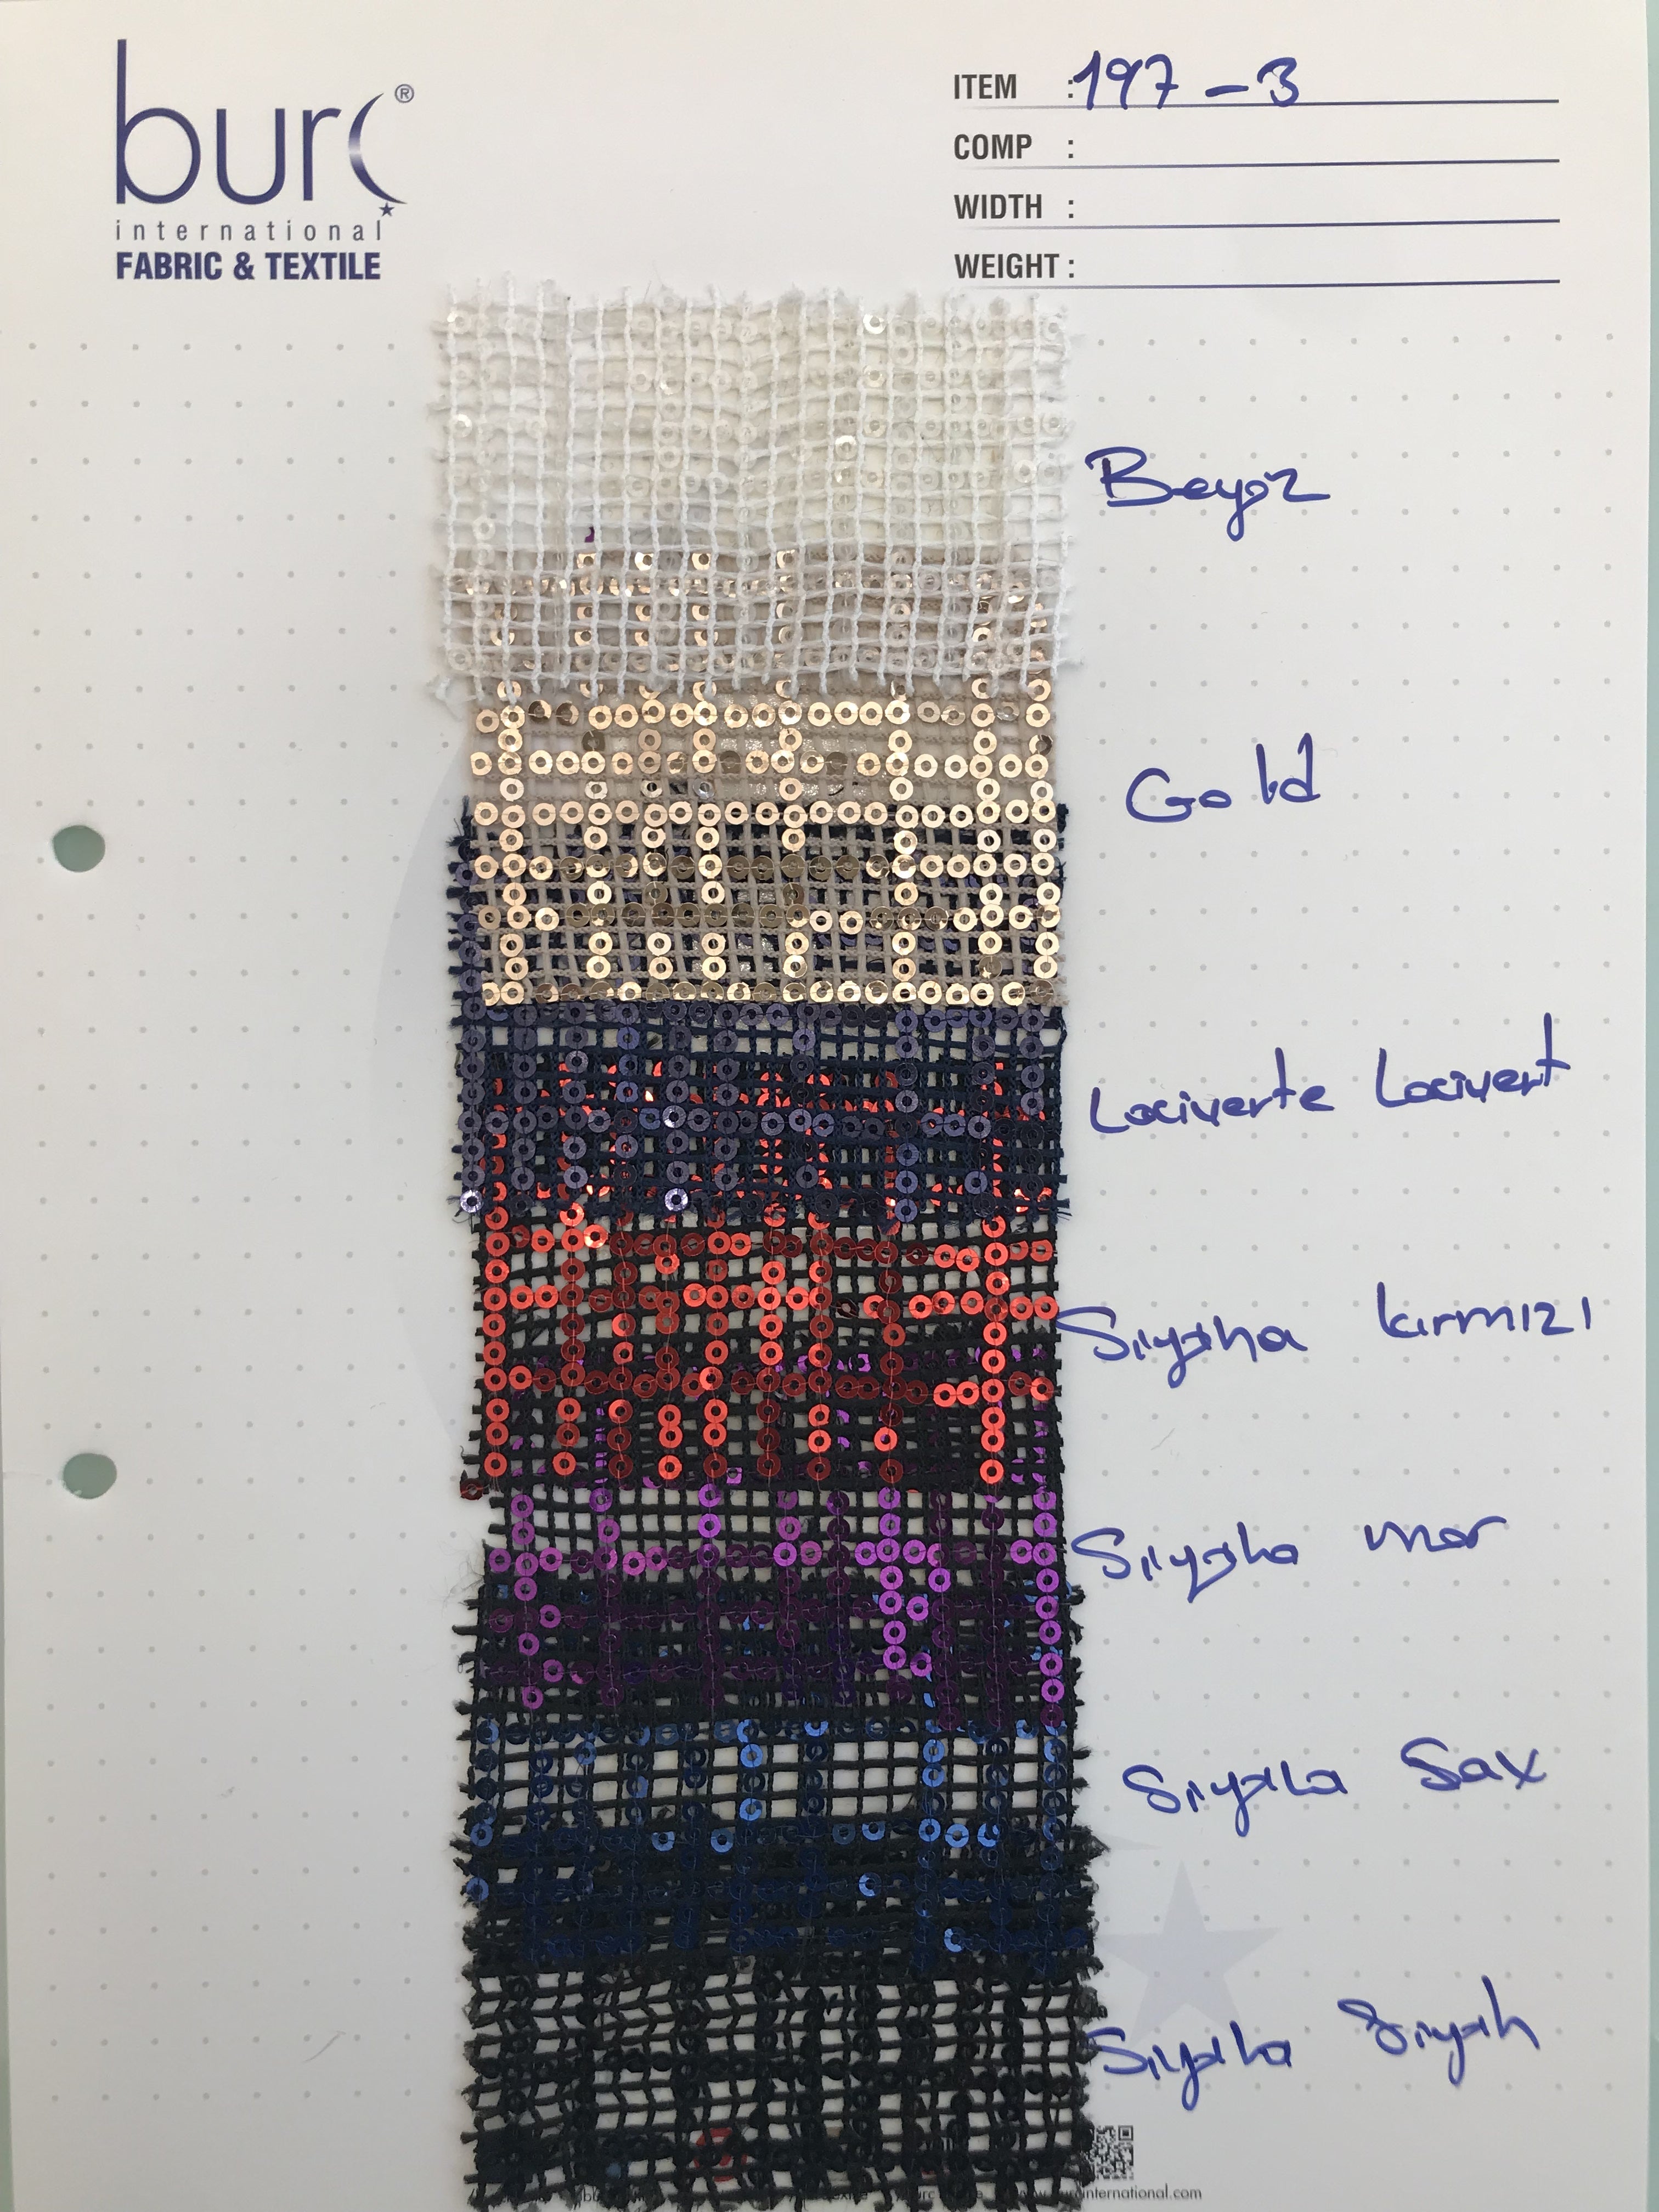 burc®
international
FABRIC & TEXTILE
ITEM : 197 - 3
COMP :
WIDTH :
WEIGHT :
Beyaz
Gold
Laciverte Lacivert
Siyaha kırmızı
Siyaha mor
Siyaha Sax
Siyaha Siyah
international.com